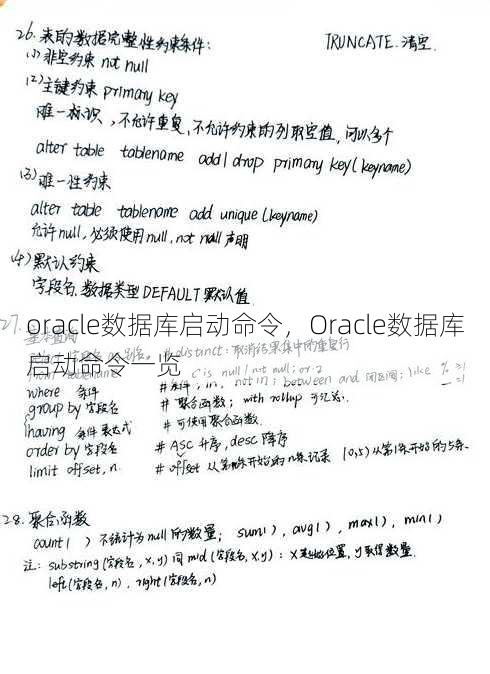 26. 表的数据完整性约束条件:
TRUNCATE. 清空.
(1) 非空约束 not null
(2) 主键约束 primary key
唯一标识, 不允许重复, 不允许约束的列取空值, 可以多个
alter table tablename add | drop primary key (keyname)
(3) 唯一性约束
alter table tablename add unique (keyname)
允许null, 必须使用null, not null 声明
(4) 默认约束
字段名 数据类型 DEFAULT 默认值
27.
oracle数据库启动命令，Oracle数据库
启动命令一览
distinct: 取消结果集中的重复行
is null | not null; or: 2
where 条件 # 条件, in, not in; between and 闭区间; like % ≥1
_ =1
group by 字段名 # 聚合函数; with rollup 可汇总.
having 条件表达式 # 可使用聚合函数.
order by 字段名 # ASC 升序, desc 降序
limit offset, n. # offset 从第 开始的n条记录 (0,5) 从第1条开始的5条.
28. 聚合函数
count( ) 不统计为null的数量; sum( ), avg( ), max( ), min( )
注: substring (字段名, x, y) 同 mid (字段名, x, y) : x 起始位置, y 取得数量.
left (字段名, n), right (字段名, n)